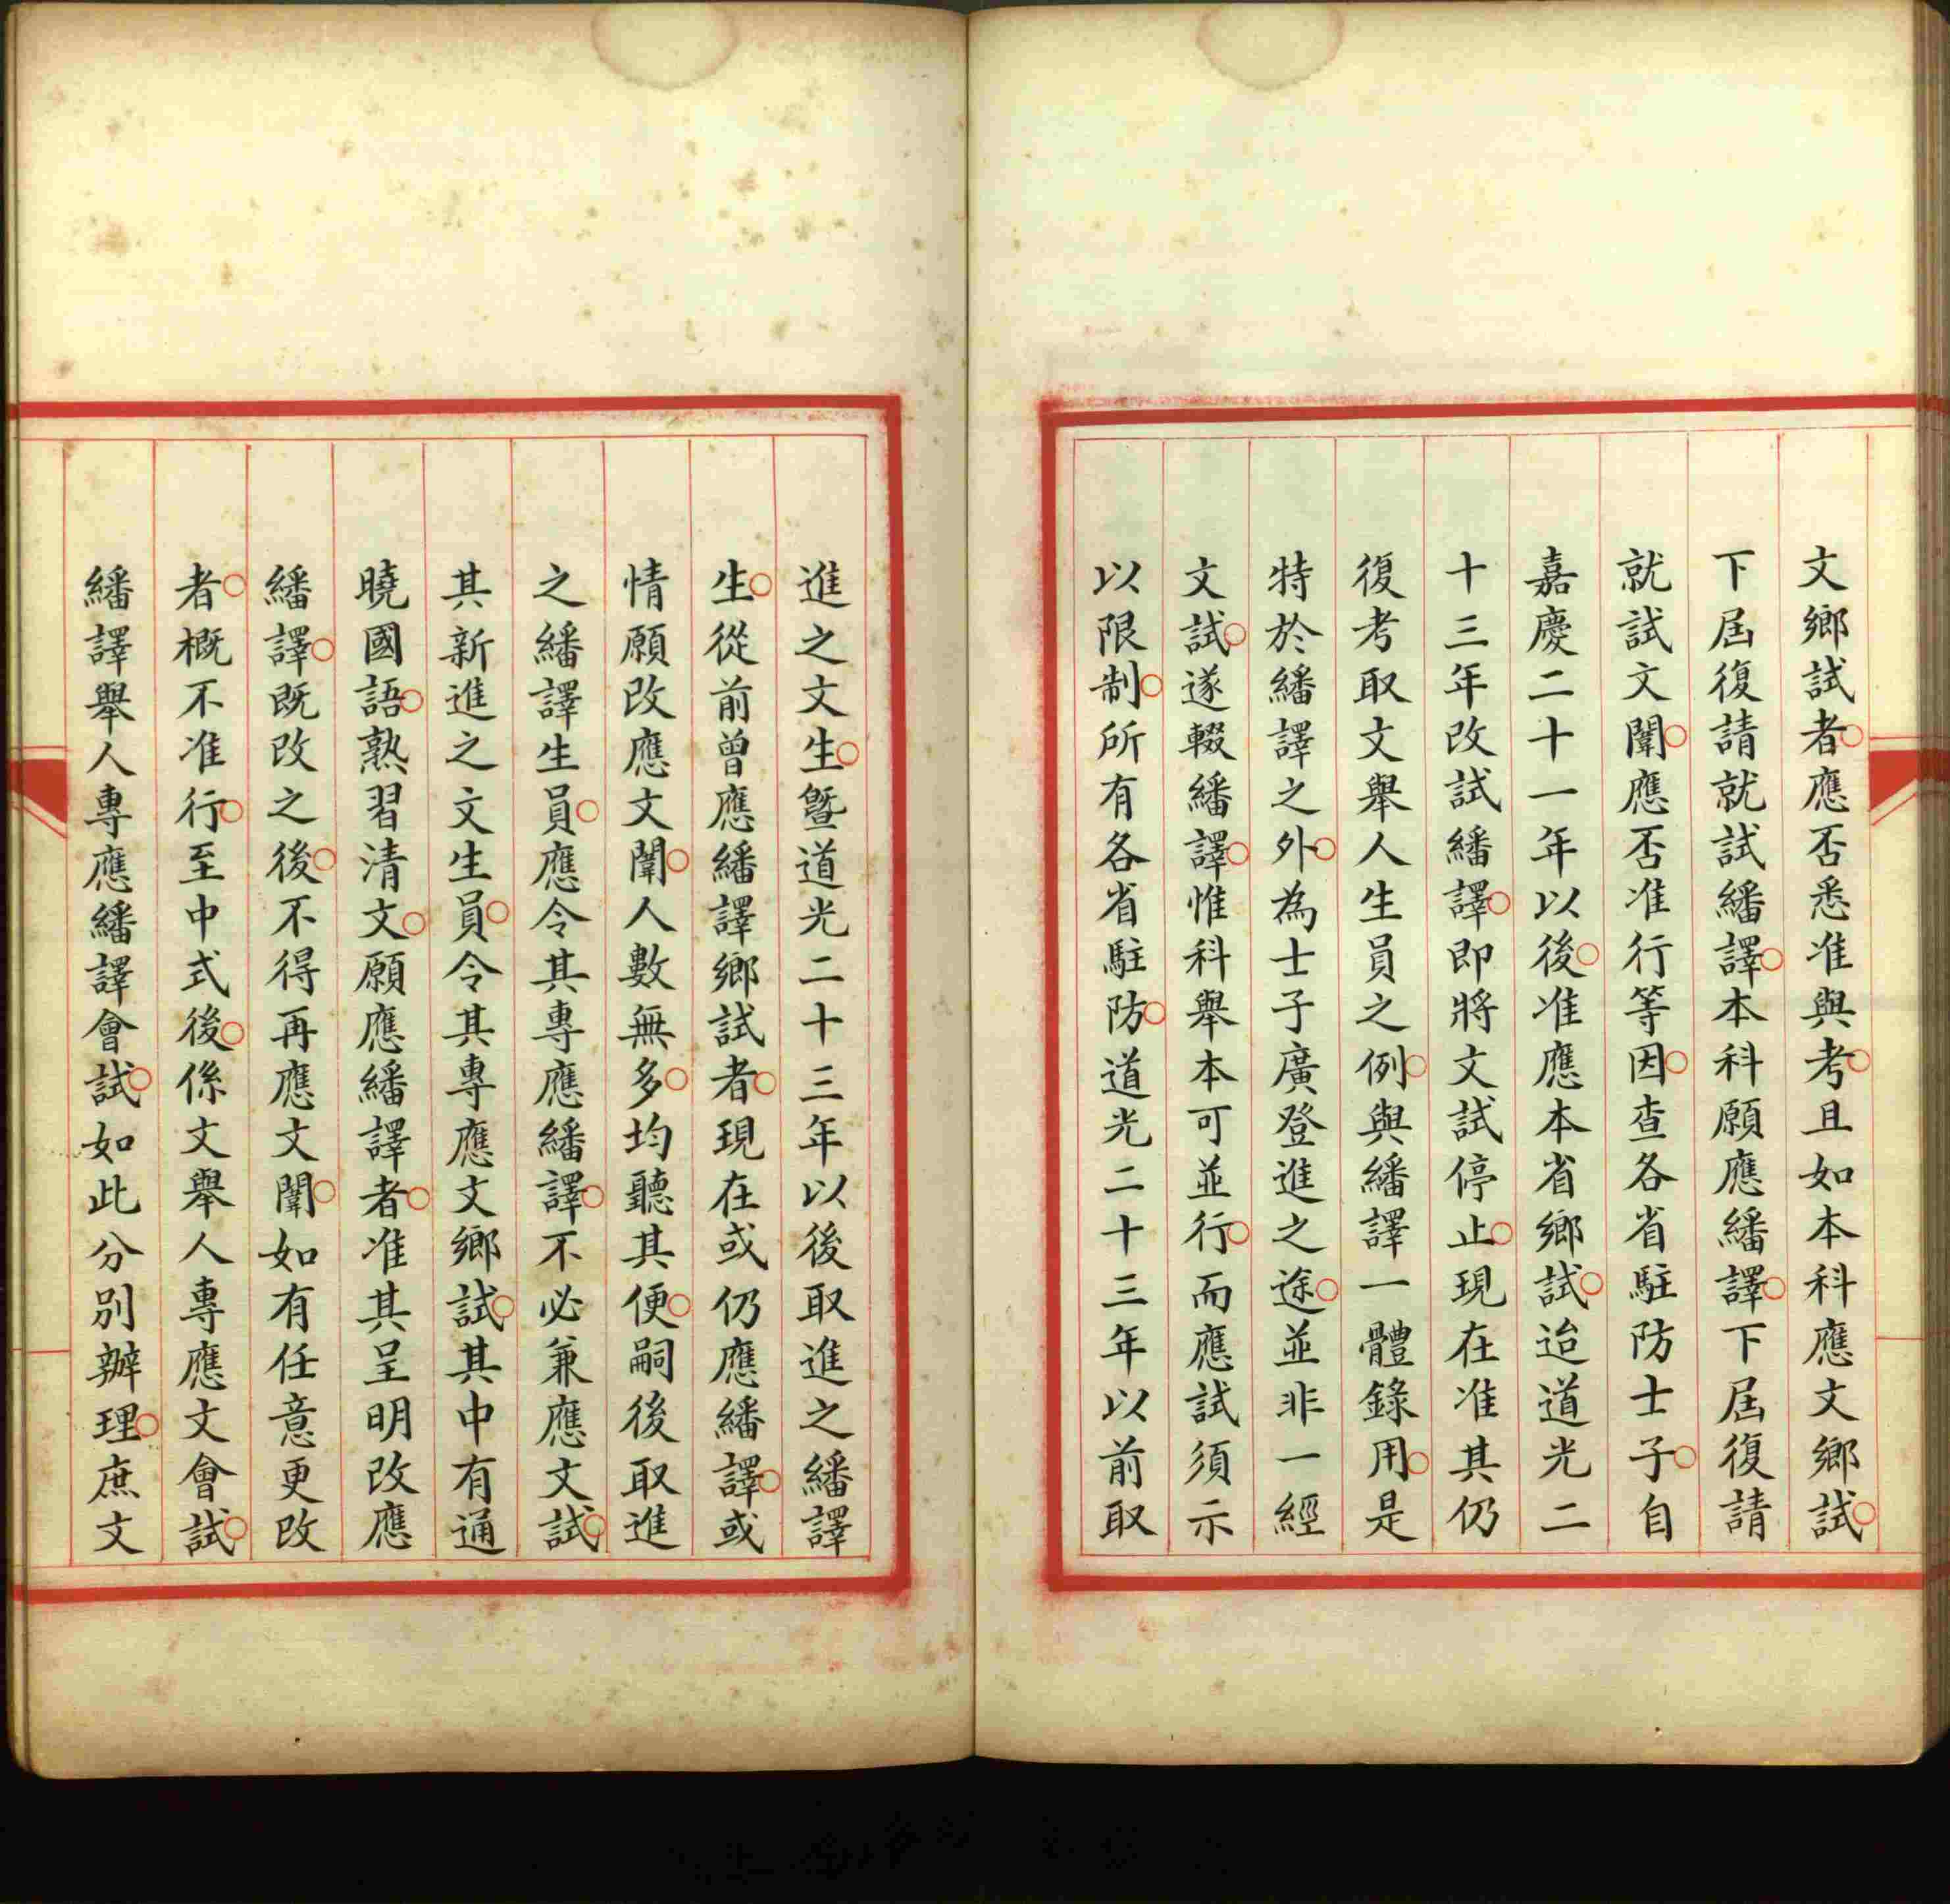 文鄉試者應否悉准與考且如本科應文鄉試
下屆復請就試繙譯本科願應繙譯下屆復請
就試文闈應否准行等因查各省駐防士子自
嘉慶二十一年以後准應本省鄉試迨道光二
十三年改試繙譯即將文試停止現在准其仍
復考取文舉人生員之例與繙譯一體錄用是
特於繙譯之外為士子廣登進之途並非一經
文試遂輟繙譯惟科舉本可並行而應試須示
以限制所有各省駐防道光二十三年以前取
進之文生曁道光二十三年以後取進之繙譯
生從前曾應繙譯鄉試者現在或仍應繙譯或
情願改應文闈人數無多均聽其便嗣後取進
之繙譯生員應令其專應繙譯不必兼應文試
其新進之文生員令其專應文鄉試其中有通
曉國語熟習清文願應繙譯者准其呈明改應
繙譯既改之後不得再應文闈如有任意更改
者概不准行至中式後係文舉人專應文會試
繙譯舉人專應繙譯會試如此分別辦理庶文